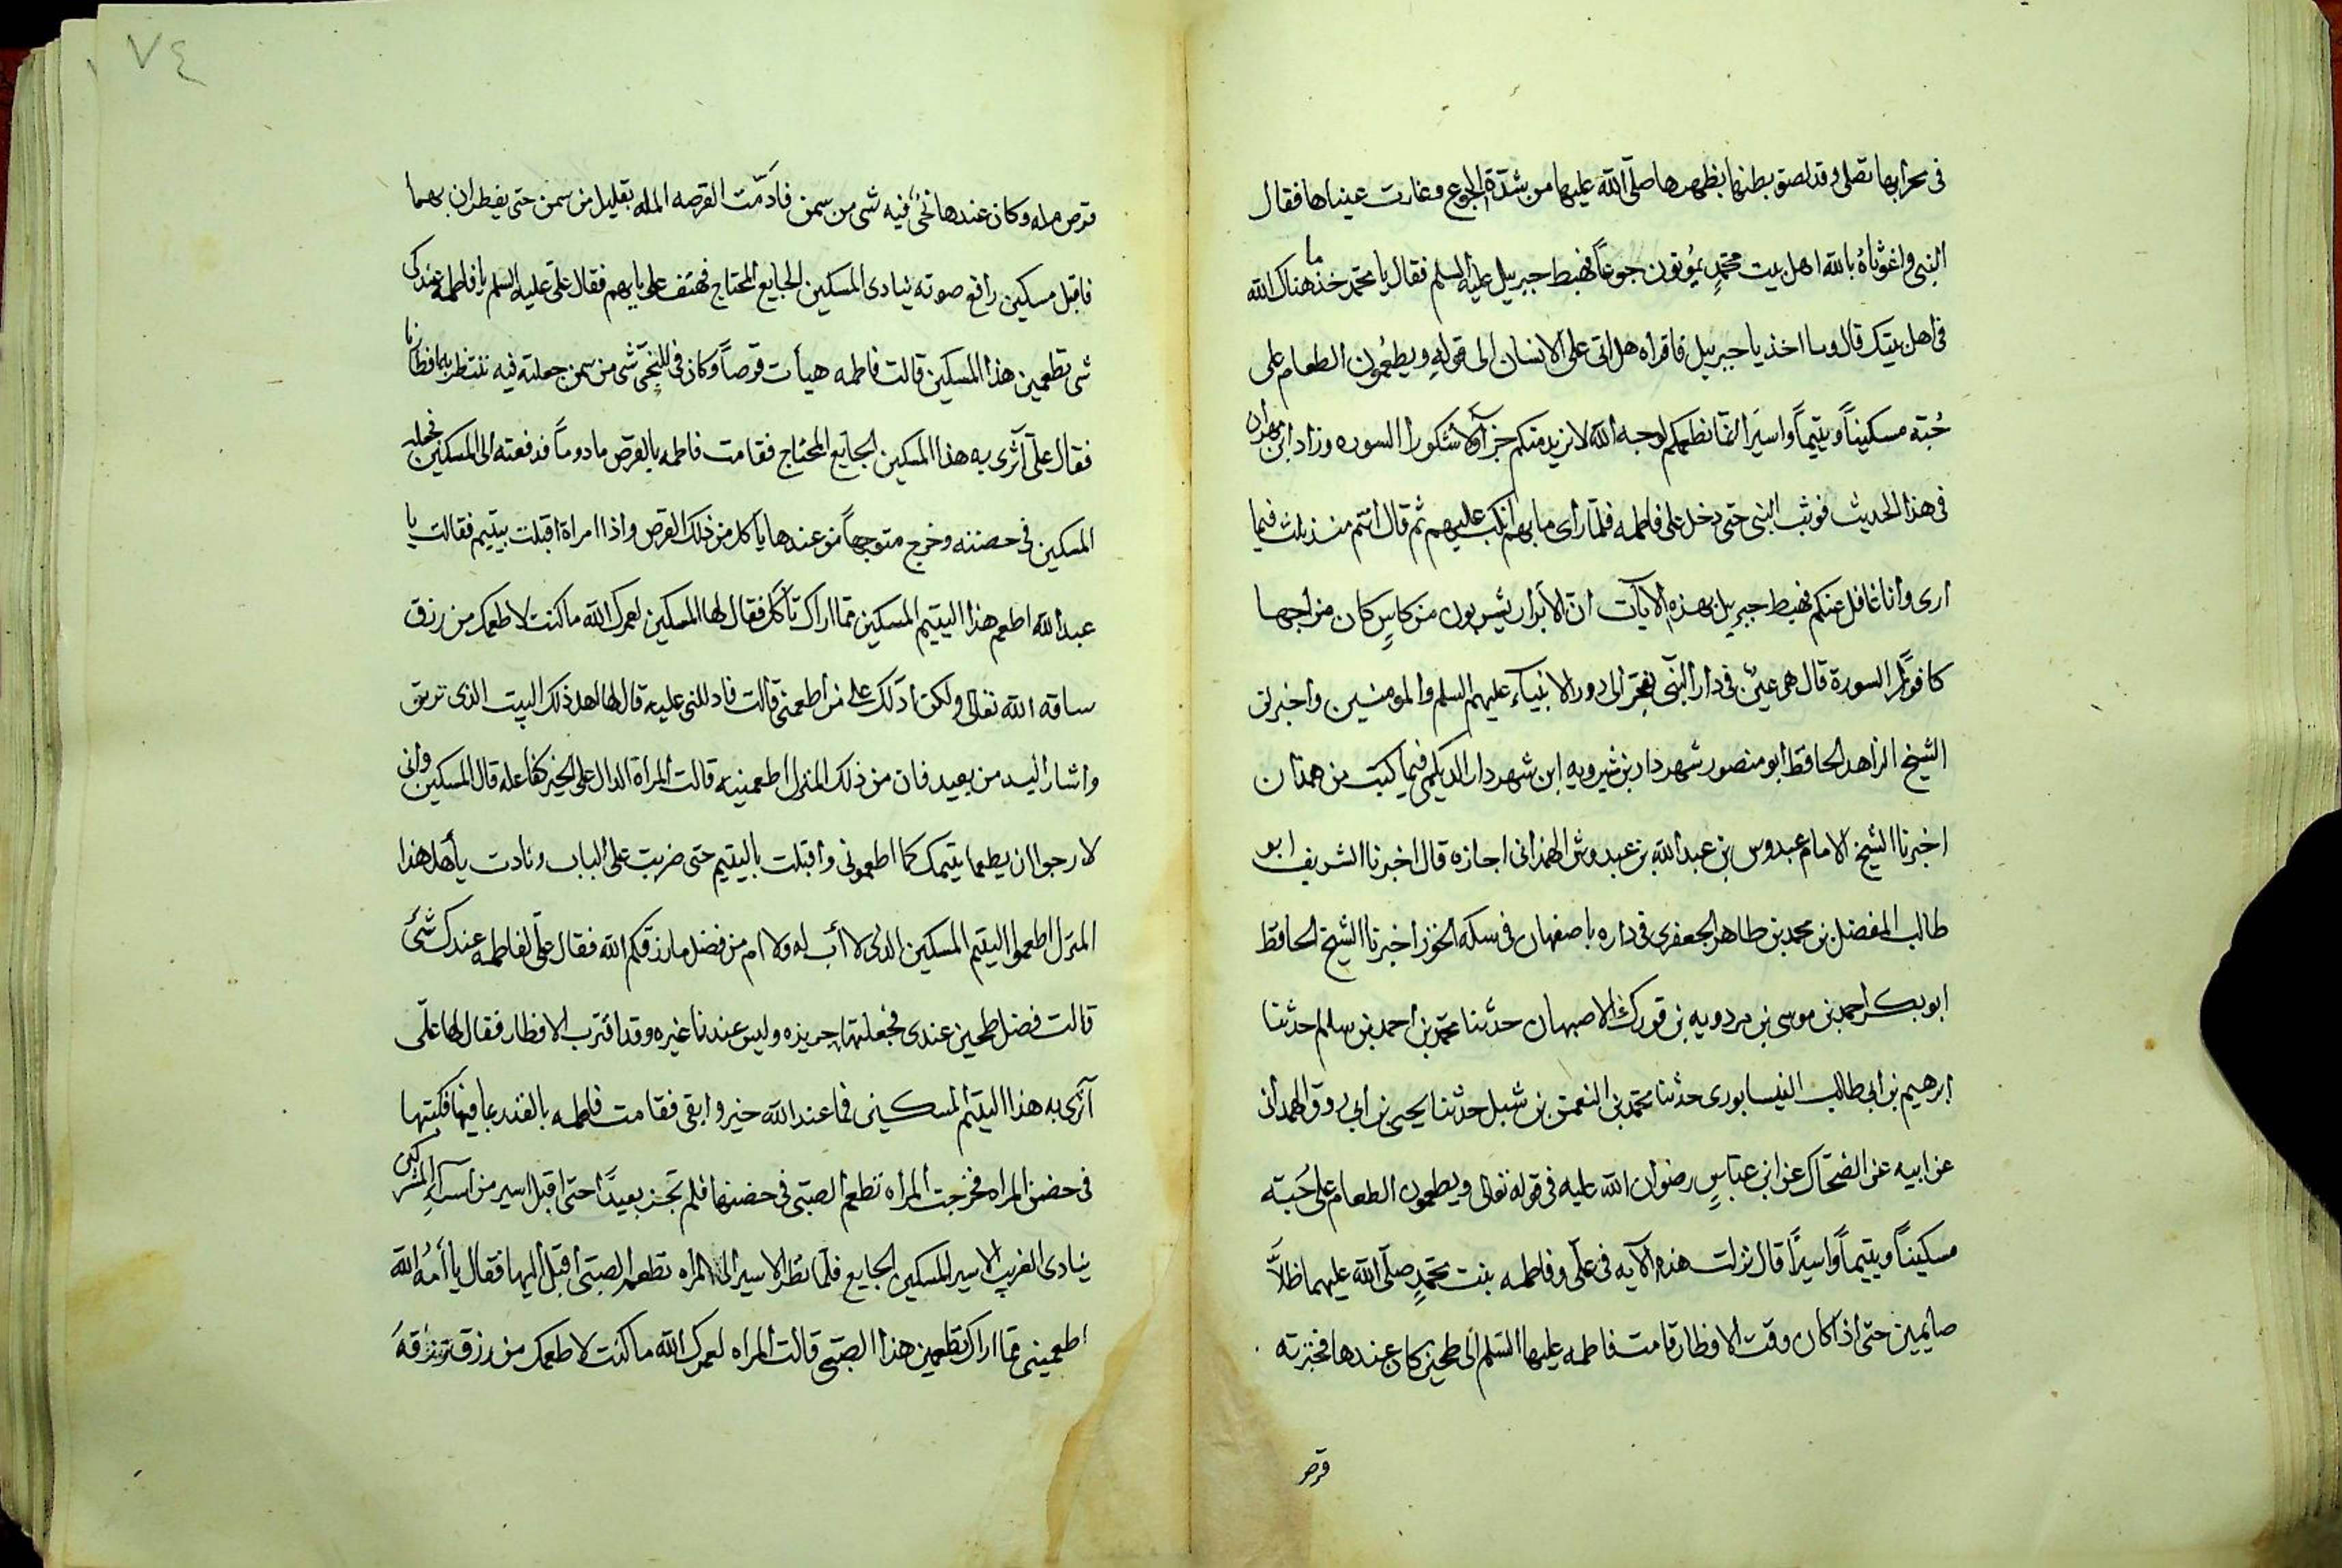 في محرابها تصلى وقد لصق بطنها بظهرها صلى الله عليها من شدة الجوع وغارت عيناها فقال
النبي واغوثاه بالله اهل بيت محمد يموتون جوعاً فهبط جبرييل عليه السلم فقال يا محمد خذ ما هناك الله
في اهل بيتك قال وما اخذ يا جبرييل فاقراه هل اتى على الانسان الى قوله ويطعمون الطعام على
حبه مسكيناً ويتيماً واسيراً انما نطعمكم لوجه الله لا نريد منكم جزآء ولا شكورا السوره وزاد ابن مهران
في هذا الحديث فوثب النبي حتى دخل على فاطمه فلما رأى ما بهم انكب عليهم ثم قال انتم منذ ثلث فيما
ارى وانا غافل عنكم فهبط جبرييل بهذه الايات ان الأبرار يشربون من كاسٍ كان مزاجها
كافوراً السورة قال هي عين في دار النبي تفجر الى دور الانبياء عليهم السلم والمومنين واخبرني
الشيخ الزاهد الحافظ ابو منصور شهردار بن شيرويه ابن شهردار الديلمي فيما كتب من همدان
اخبرنا الشيخ الامام عبدوس بن عبد الله بن عبدوس الهمذاني اجازه قال اخبرنا الشريف ابو
طالب المفضل بن محمد بن طاهر الجعفري في داره باصفهان في سكه الخوز اخبرنا الشيخ الحافظ
ابو بكر احمد بن موسى بن مردويه بن فورك الاصبهان حدثنا محمد بن احمد بن سالم حدثنا
ابرهيم بن ابي طالب النيسابوري حدثنا محمد بن النعمن بن شبل حدثنا يحيى بن ابي روق الهمداني
عن ابيه عن الضحاك عن ابن عباسٍ رضوان الله عليه في قوله تعالى ويطعمون الطعام على حبه
مسكيناً ويتيماً واسيراً قال نزلت هذه الآيه في علي وفاطمه بنت محمدٍ صلى الله عليهما ظلا
صايمين حتى اذا كان وقت الافطار قامت فاطمه عليها السلم الى طحين كان عندها فخبزته
قرص
٧٤
قرص مله وكان عندها نحيٌ فيه شي من سمن فادمت القرصه المله بقليل من سمن حتى يفطران بهما
فاقبل مسكين رافع صوته ينادى المسكين الجايع المحتاج فهتف على بابهم فقال علي عليه السلم يا فاطمة عندكى
شي تطعمين هذا المسكين قالت فاطمه هيأت قرصاً وكان في النحي شي من سمن جعلته فيه ننتظر به افطارنا
فقال علي آثرى به هذا المسكين الجايع المحتاج فقامت فاطمه بالقرص مادوماً فدفعته الى المسكين فجعله
المسكين في حضنه وخرج متوجهاً من عندها ياكل من ذلك القرص واذا امراة اقبلت بيتيم فقالت يا
عبد الله اطعم هذا اليتيم المسكين مما اراك تأكل فقال لها المسكين لعمرك الله ما كنت لاطعمك من رزق
ساقه الله تعالى ولكن ادلك على من اطعمني قالت فادللني عليه قال لها اهل ذلك البيت الذى ترين
واشار اليه من بعيد فان من ذلك المنزل اطعمنيه قالت المراة الدال على الخير كفاعله قال المسكين واني
لارجوا ان يطعما يتيمك كما اطعموني واقبلت باليتيم حتى ضربت على الباب ونادت يا أهل هذا
المنزل اطعموا اليتيم المسكين الذى لا أب له ولا ام من فضل ما رزقكم الله فقال علي لفاطمه عندك شئ
قالت فضل طحين عندى فجعلتها حريره وليس عندنا غيره وقد اقترب الافطار فقال لها علي
آثرى به هذا اليتيم المسكين فما عند الله خير وابقى فقامت فاطمه بالقدر بما فيها فكبتها
في حضن المراه فخرجت المراه تطعم الصبي في حضنها فلم تجز بعيداً حتى اقبل اسير من اسرآء المشركين
ينادى الغريب الاسير المسكين الجايع فلما نظر الاسير الى المراه تطعم الصبي اقبل اليها فقال يا أمة الله
اطعميني مما اراك تطعمين هذا الصبي قالت المراه لعمرك الله ما كنت لاطعمك من رزق